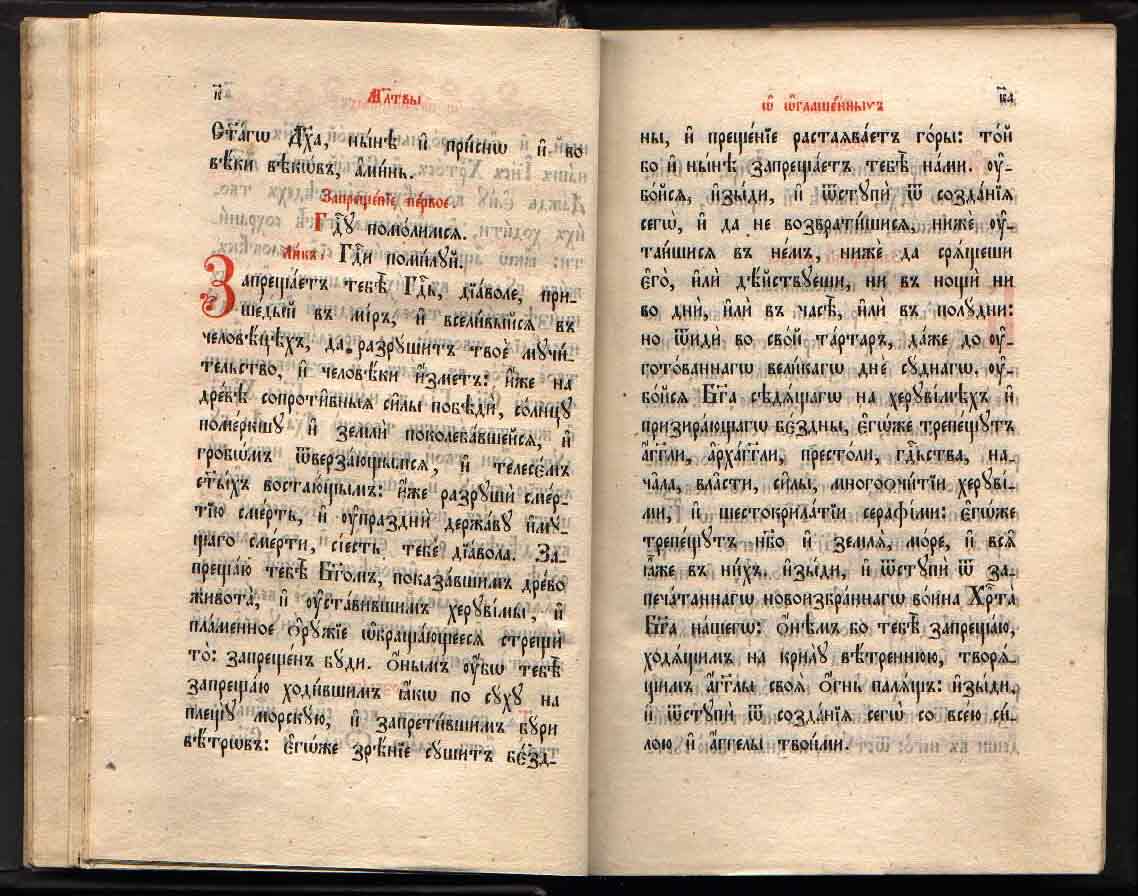 к҃
Мл҃твы
Ст҃а́гѡ Дх҃а, ны́нѣ и҆ при́снѡ и҆ во
вѣ́ки вѣкѡ́въ, а҆ми́нь.
Запреще́нїе пе́рвое
Гдⷭ҇у помо́лимся.
Ли́къ: Гдⷭ҇и поми́луй.
Запреща́етъ тебѣ̀ Гдⷭ҇ь, дїа́воле, при-
ше́дый въ мі́ръ, и҆ всели́выйся въ
человѣ́цѣхъ, да разруши́тъ твоѐ мучи́-
тельство, и҆ человѣ́ки и҆́зметъ: и҆́же на
дре́вѣ сопроти́вныя си́лы побѣдѝ, со́лнцу
поме́ркшу и҆ землѝ поколеба́вшейся, и҆
гробѡ́мъ ѿверза́ющымся, и҆ телесє́мъ
ст҃ы́хъ востаю́щымъ: и҆́же разрушѝ сме́р-
тїю сме́рть, и҆ ᲂу҆празднѝ держа́ву и҆му́-
щаго сме́рти, сїе́сть тебѐ дїа́вола. За-
преща́ю тебѣ̀ Бг҃омъ, показа́вшимъ дре́во
живота̀, и҆ ᲂу҆ста́вившимъ херуві́мы, и҆
пла́менное ѻ҆ру́жїе ѡ҆браща́ющееся стрещѝ
то̀: запреще́нъ бу́ди. Ѻ҆́нымъ ᲂу҆́бѡ тебѣ̀
запреща́ю ходи́вшимъ ꙗ҆́кѡ по су́ху на
плещу̀ морску́ю, и҆ запрети́вшимъ бу́ри
вѣ́трѡвъ: є҆гѡ́же зрѣ́нїе суши́тъ бе́зд-
к҃а
Ѡ҆ ѡ҆глаше́нныхъ
ны, и҆ преще́нїе растаява́етъ го́ры: то́й
бо и҆ ны́нѣ запреща́етъ тебѣ̀ на́ми. ᲂу҆-
бо́йся, и҆зы́ди, и҆ ѿступѝ ѿ созда́нїя
сегѡ̀, и҆ да не возврати́шися, нижѐ ᲂу҆-
таи́шися въ не́мъ, нижѐ да сря́щеши
є҆го̀, и҆лѝ дѣ́йствуеши, ни въ нощѝ ни
во днѝ, и҆лѝ въ часѣ̀, и҆лѝ въ полу́дни:
но ѿидѝ во сво́й та́ртаръ, да́же до ᲂу҆-
гото́ваннагѡ вели́кагѡ днѐ су́днагѡ. ᲂу҆-
бо́йся Бг҃а сѣдя́щагѡ на херуві́мѣхъ и҆
призира́ющагѡ бє́здны, є҆гѡ́же трепе́щутъ
а҆́гг҃ли, а҆рха́гг҃ли, престо́ли, гдⷭ҇ьства, на-
ча̑ла, вла̑сти, си̑лы, многоѻчи́тїи херуві́-
ми, и҆ шестокрила́тїи серафі́ми: є҆гѡ́же
трепе́щутъ нб҃о и҆ земля̀, мо́ре, и҆ всѧ̑
ꙗ҆̀же въ ни́хъ. и҆зы́ди, и҆ ѿступѝ ѿ за-
печа́таннагѡ новоизбра́ннагѡ во́ина Хрⷭ҇та̀
Бг҃а на́шегѡ: ѻ҆нѣ́мъ бо тебѣ̀ запреща́ю,
ходя́щимъ на крилу̀ вѣ́треннюю, творя́-
щимъ а҆́гг҃лы своя̑ ѻ҆́гнь паля́щъ: и҆зы́ди,
и҆ ѿступѝ ѿ созда́нїя сегѡ̀ со все́ю си́-
лою и҆ а҆́ггелы твои́ми.